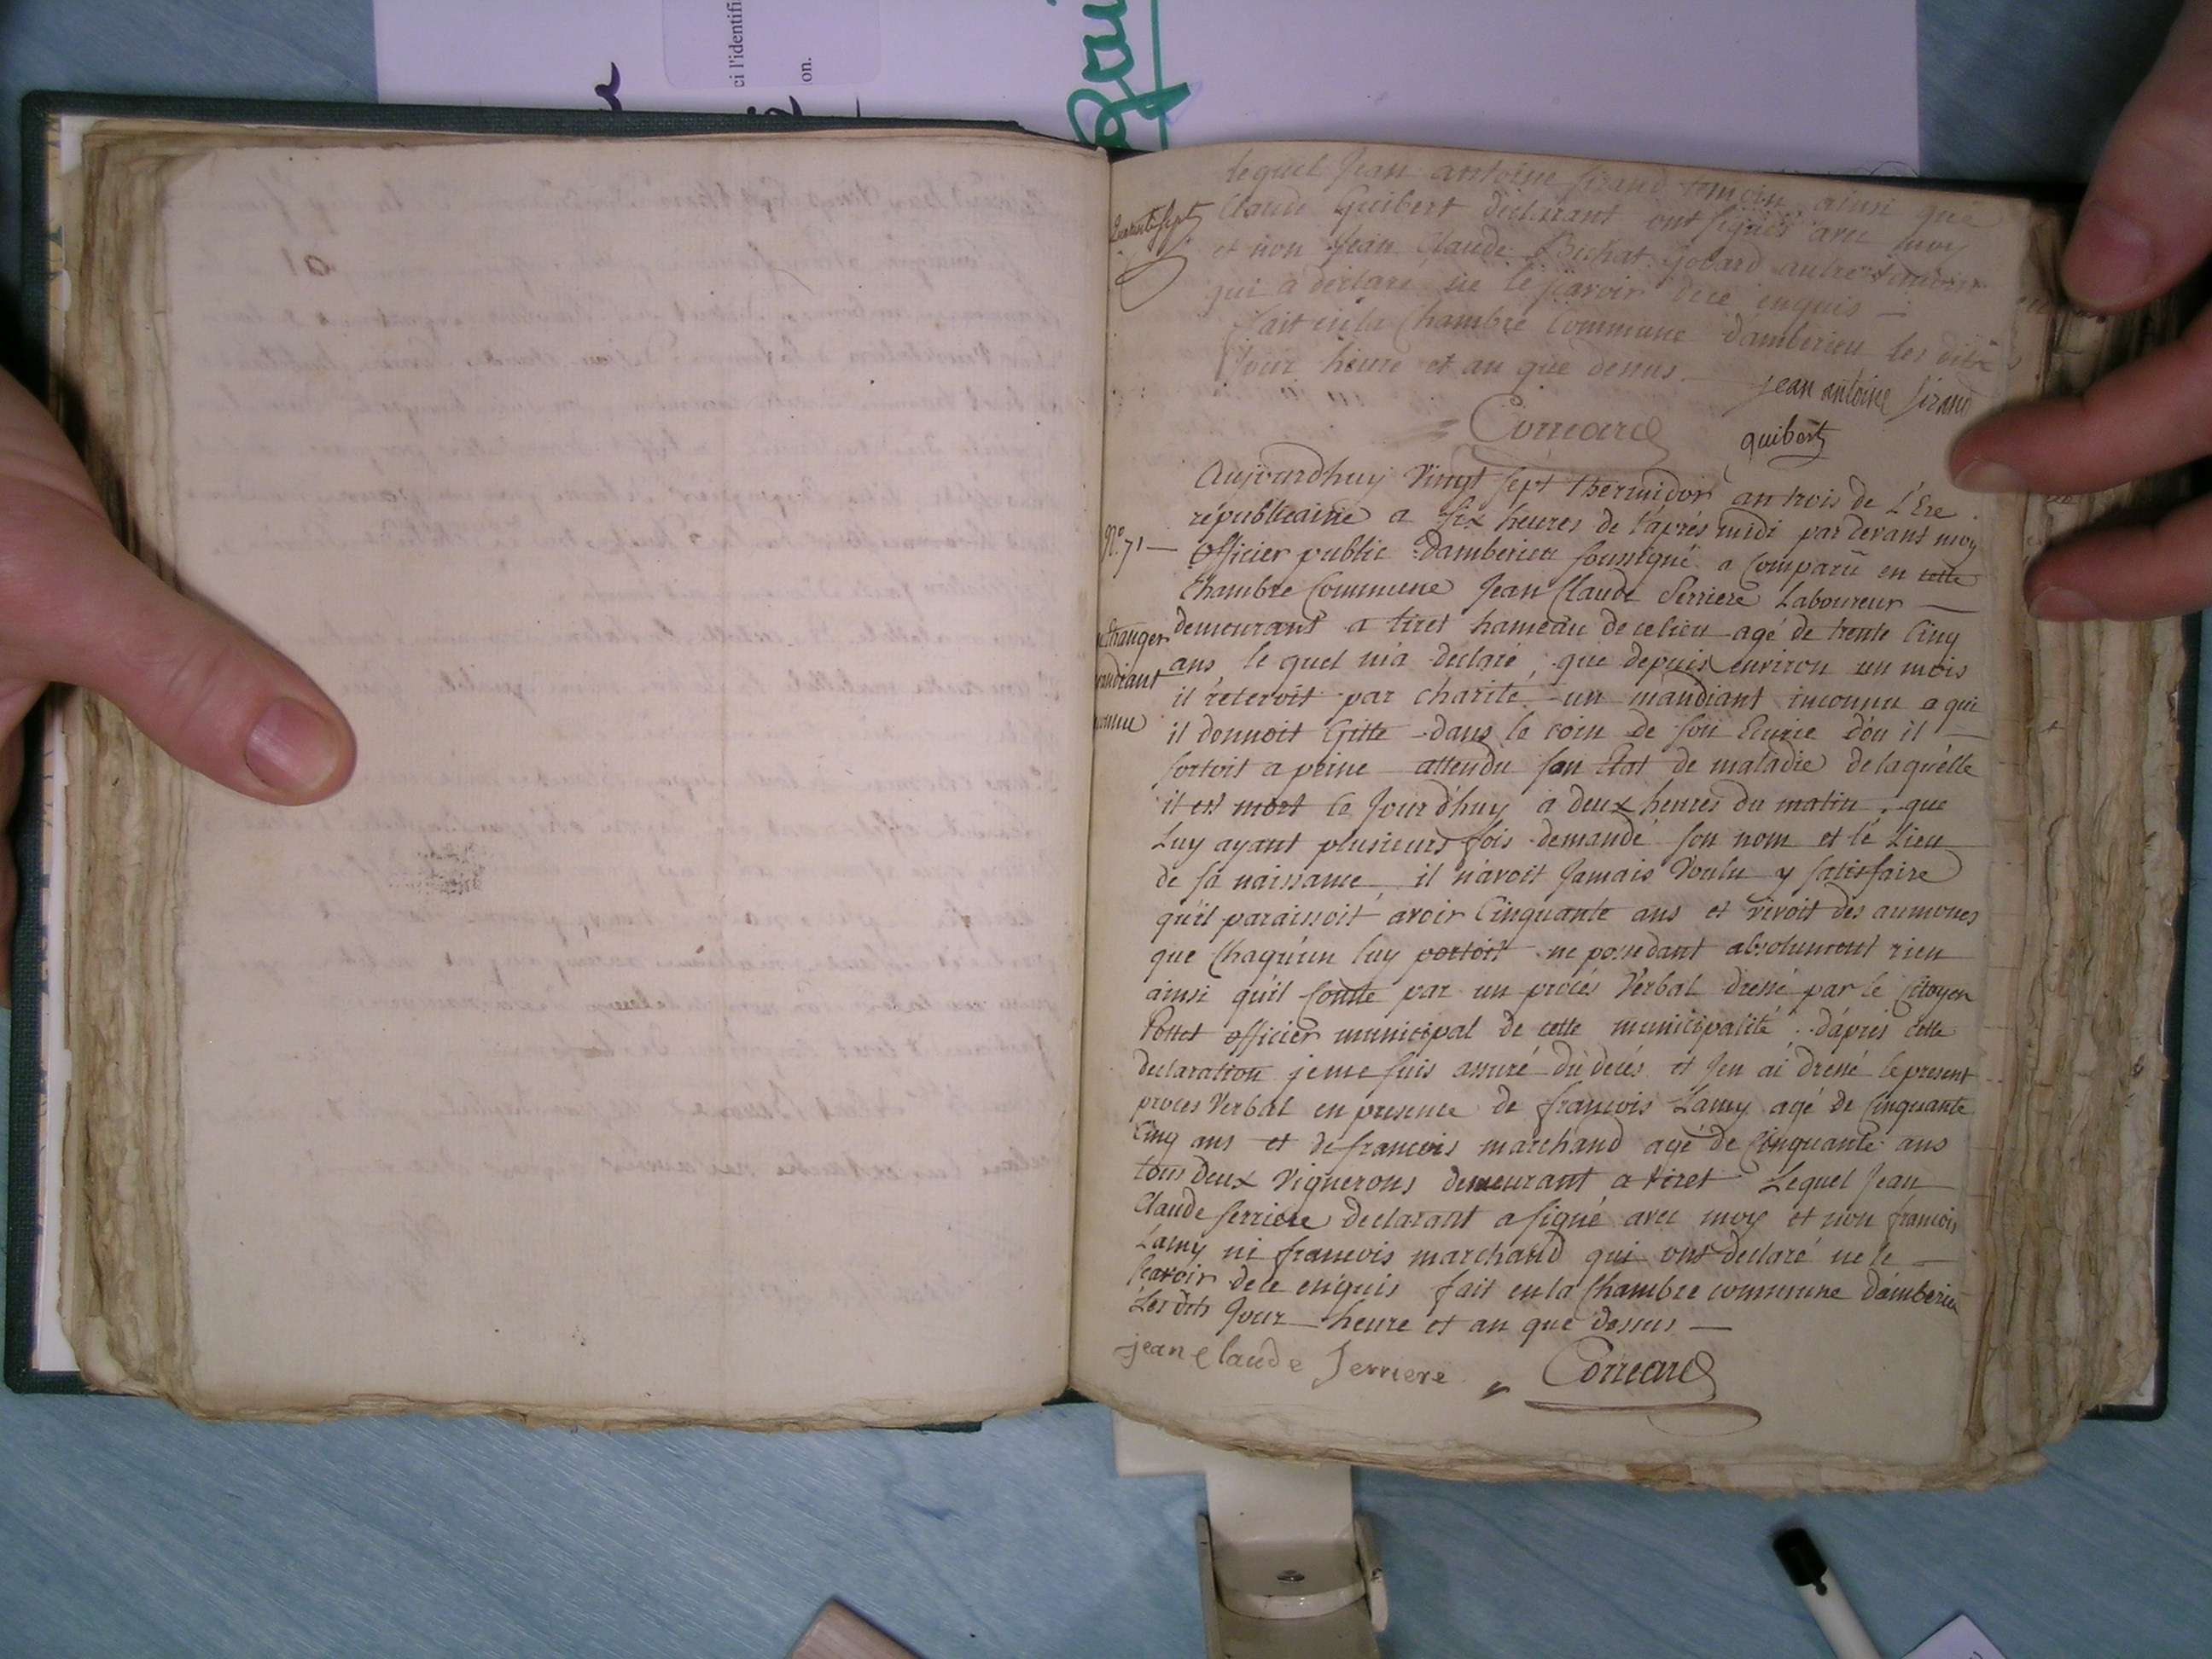 ci l'identifi
on.
lequel Jean antoine Sirand temoin ainsi que
Claude Guibert declarant ont signés avec moy
et non Jean Claude Bechat Govard autre temoin
qui a déclaré ne le scavoir de ce enquis —
fait en la Chambre Commune dambérieu les dits
Jour heure et an que dessus.
quarante sept
jean antoine Sirand
Correard
guibert
Aujourdhuy Vingt sept thermidor an trois de L'Ere
républicaine a six heures de l'aprés midi par devant moy
N.º 71 — Officier public Dambérieu soussigné a Comparû en cette
Chambre Commune Jean Claude Serriere Laboureur —
Etranger
mandiant
demeurant a tiret hameau de ce lieu agé de trente Cinq
ans le quel m'a déclaré, que depuis environ un mois
il retiroit par charité un mandiant inconnu a qui
il donnoit Gitte dans le coin de son Ecurie d'ou il —
sortoit a peine attendu son Etat de maladie de laquélle
il est mort ce Jourd'huy a deux heures du matin, que
Luy ayant plusieurs fois demandé son nom et le Lieu
de sa naissance il n'avoit Jamais Voulu y satisfaire
qu'il paraissoit avoir Cinquante ans et vivoit des aumones
que Chaqu'un luy portoit ne possedant absolument rien
ainsi qu'il Conste par un procés Verbal dressé par le Citoyen
Pottet officier municipal de cette municipalité. d'aprés cette
declaration je me suis assuré du decés et J'en ai dressé le present
proces Verbal en presence de françois Lamy agé de Cinquante
Cinq ans et de francois marchand agé de Cinquante ans
tous deux Vignerons demeurant a tiret Lequel Jean
Claude Serriere declarant a signé avec moy et non francois
Lamy ni francois marchand qui ont declaré ne le —
scavoir de ce enquis fait en la Chambre commune d'amberieu
Les dits Jour heure et an que dessus —
jean claude Serriere
Correard